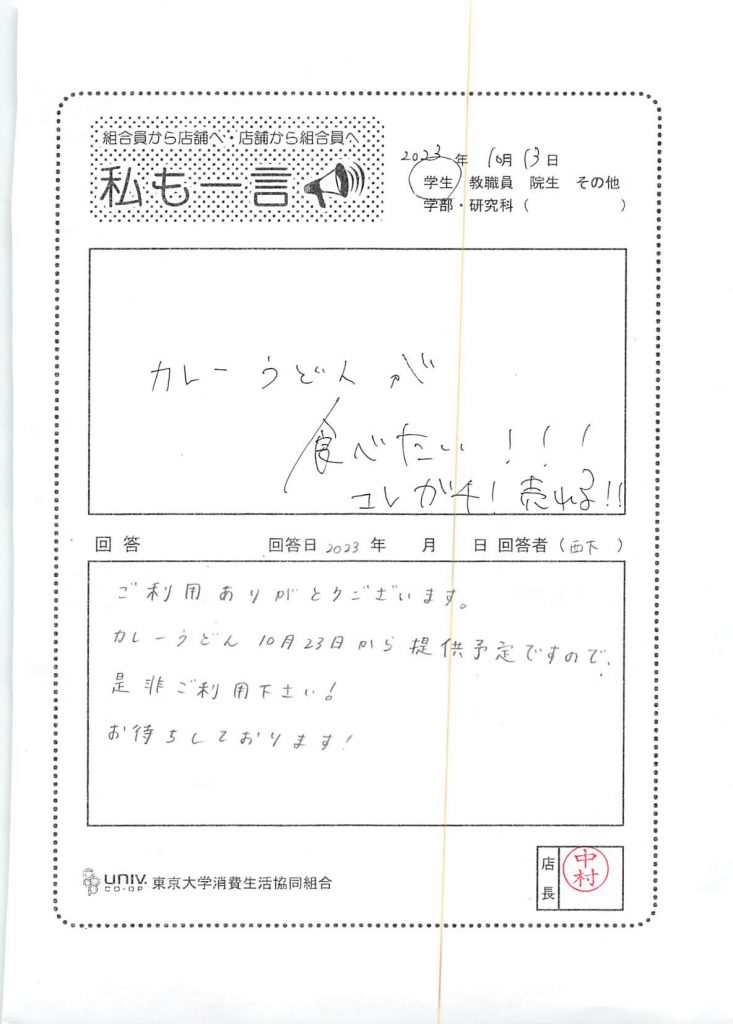 組合員から店舗へ・店舗から組合員へ
私も一言
2023年 10月 13日
学生 教職員 院生 その他
学部・研究科（ ）
カレーうどんが
食べたい！！！
コレガチ！売れる!!
回答 回答日 2023 年 月 日 回答者（西下）
ご利用ありがとうございます。
カレーうどん 10月23日から提供予定ですので、
是非ご利用下さい！
お待ちしております！
UNIV. CO-OP 東京大学消費生活協同組合
店長 中村